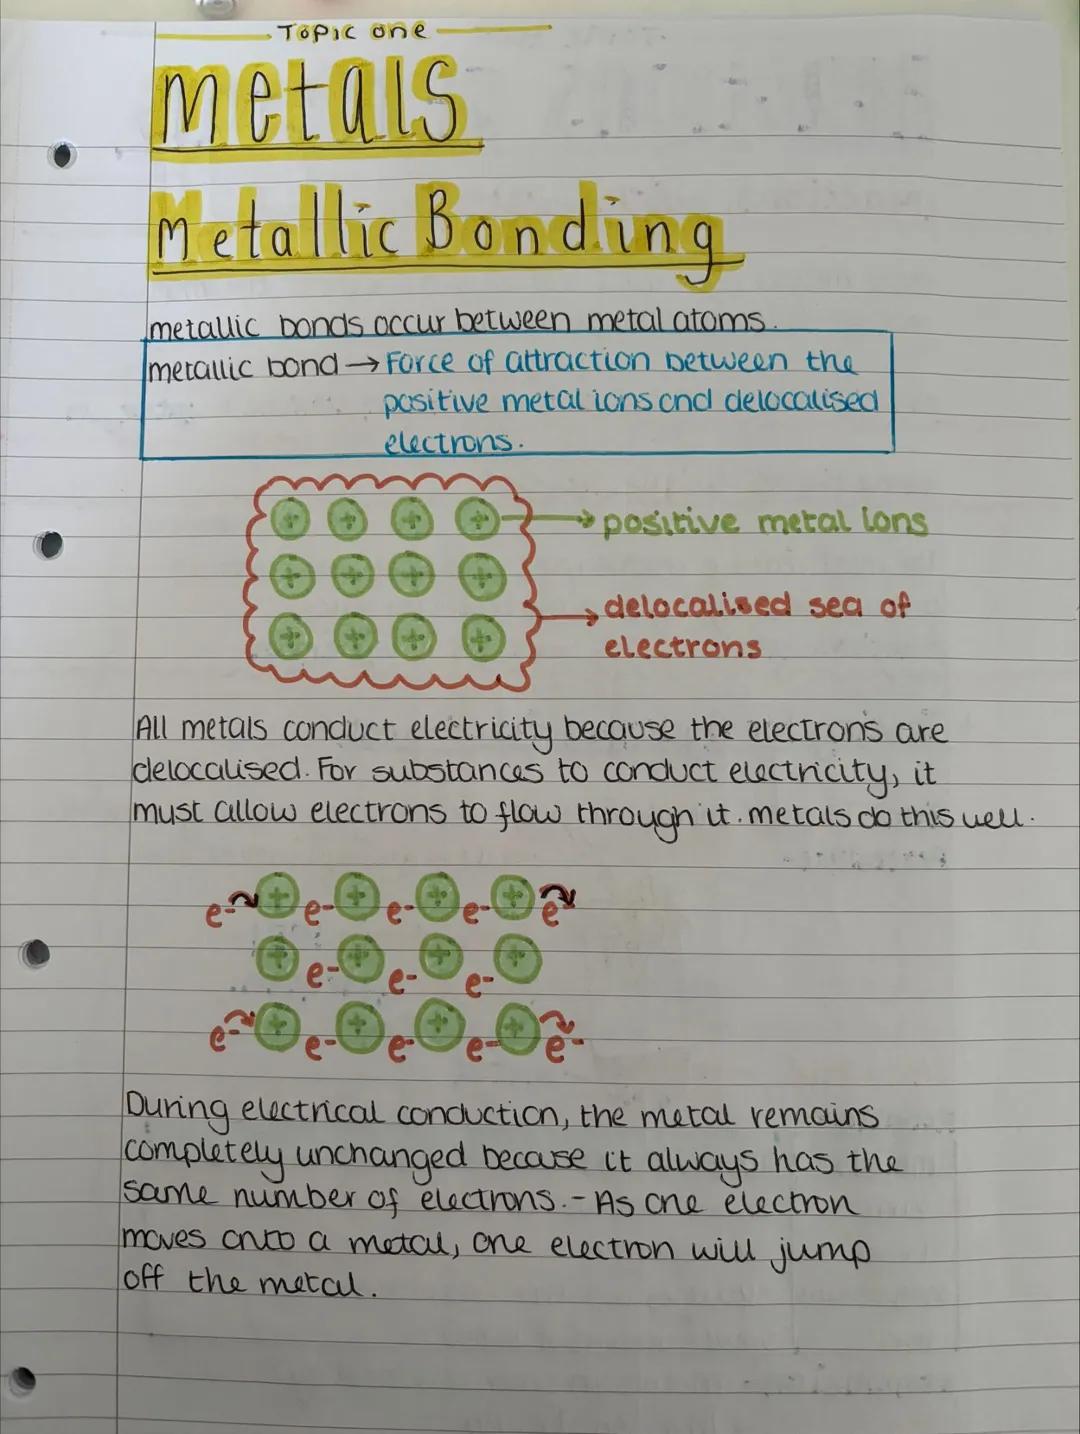 Topic one
metals
Metallic Bonding
metallic bonds occur between metal atoms.
metallic bond → Force of attraction between the
positive metal ions and delocalised
electrons.
+ + + + → positive metal ions
+ + + +
→ delocalised sea of
electrons
+ + + +
All metals conduct electricity because the electrons are
delocalised. For substances to conduct electricity, it
must allow electrons to flow through it. metals do this well.
e- + e- + e- + e- + e-
+ e- + e- + e- +
e- + e- + e- + e- + e-
During electrical conduction, the metal remains
completely unchanged because it always has the
same number of electrons. - As one electron
moves onto a metal, one electron will jump
off the metal.